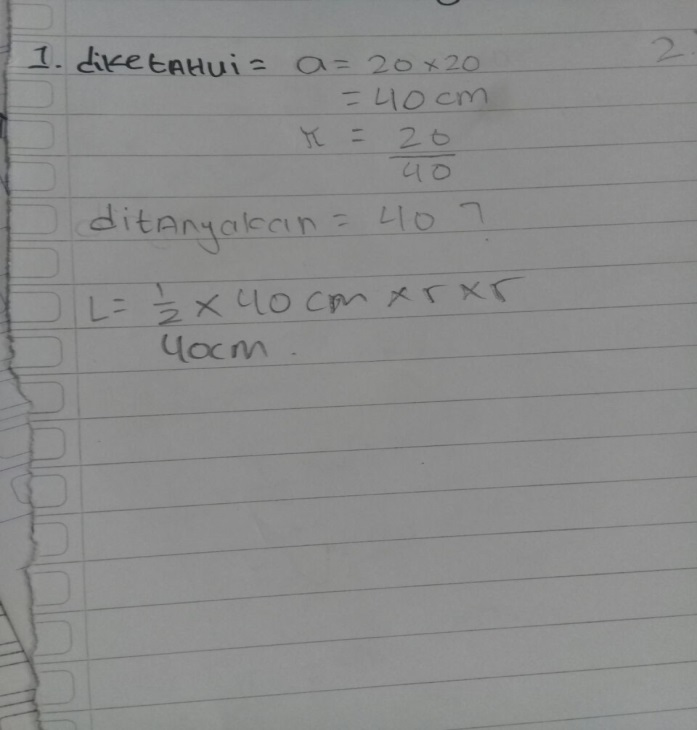 1. diketahui = a = 20 x 20
= 40 cm
r = 20
40
ditanyakan = 40 ?
L = 1/2 x 40 cm x r x r
40cm.
2.